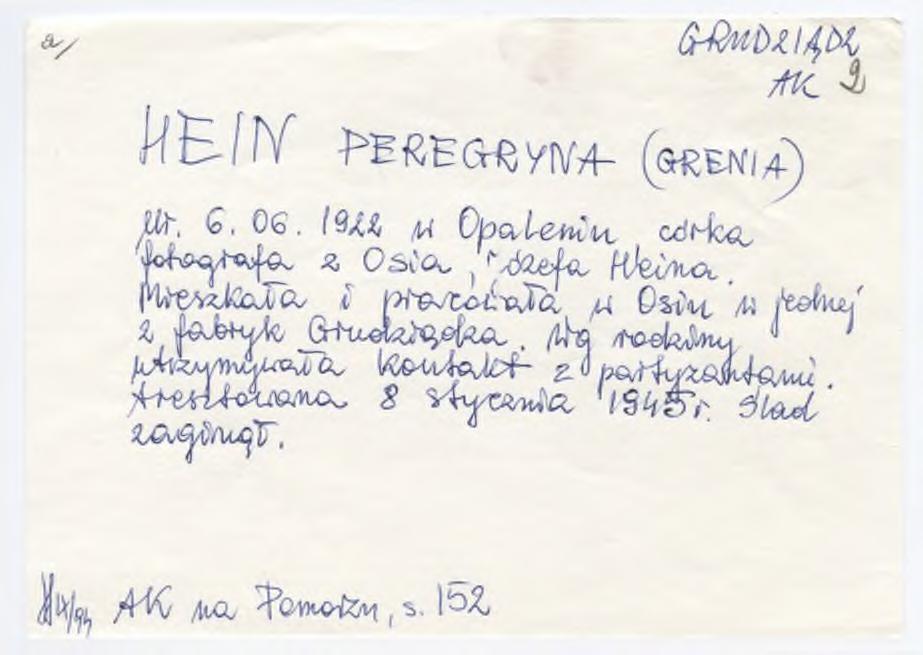 a/
GRUDZIĄDZ
AK 9
HEIN PEREGRYNA (GRENIA)
Ur. 6. 06. 1922 w Opaleniu córka
fotografa z Osia, Józefa Heina.
Mieszkała i pracowała w Osiu w jednej
z fabryk Grudziądza. Wg rodziny
utrzymywała kontakt z partyzantami.
Aresztowana 8 stycznia 1945 r. Ślad
zaginął.
AK na Pomorzu, s. 152